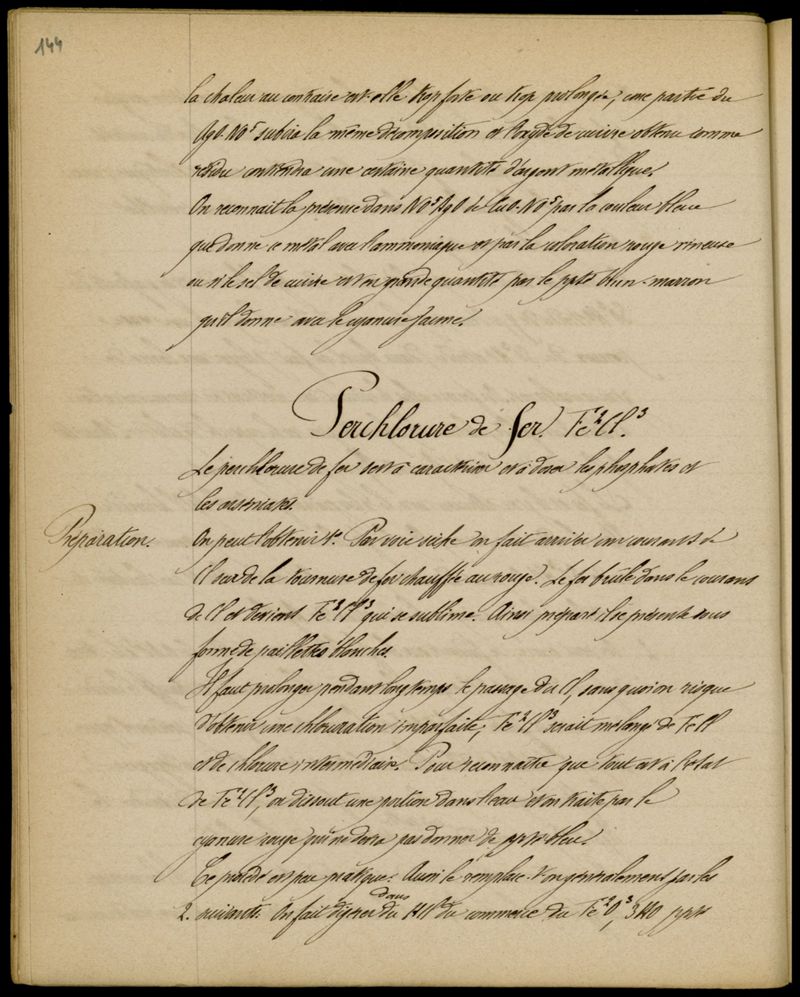 144
la chaleur au contraire est-elle trop forte ou trop prolongée, une partie du
AgO.NO⁵ subira la même décomposition et l'oxyde de cuivre obtenu comme
résidu contiendra une certaine quantité d'argent métallique.
On reconnait la présence dans NO⁵AgO de CuO.NO⁵ par la couleur bleue
que donne ce métal avec l'ammoniaque et par la coloration rouge vineuse
ou si le sel de cuivre est en grande quantité par le ppté brun-marron
qu'il donne avec le cyanure jaune.
Perchlorure de fer. Fe²Cl³.
Le perchlorure de fer sert à caractériser et à doser les phosphates et
les arséniates.
Préparation.
On peut l'obtenir 1º. Par voie sèche on fait arriver un courant de
Cl sur de la tournure de fer chauffée au rouge. Le fer brûle dans le courant
de Cl et devient Fe²Cl³ qui se sublime. Ainsi préparé il se présente sous
forme de paillettes blanches.
Il faut prolonger pendant longtemps le passage du Cl, sans quoi on risque
d'obtenir une chloruration imparfaite, Fe²Cl³ serait mélangé de FeCl
et de chlorure intermédiaire. Pour reconnaître que tout est à l'état
de Fe²Cl³, on dissout une portion dans l'eau et on traite par le
cyanure rouge qui ne devra pas donner de ppté bleu.
Ce procédé est peu pratique. Aussi le remplace-t-on généralement par les
2. suivants. On fait digérer dans du HCl du commerce du Fe²O³, 3HO ppté